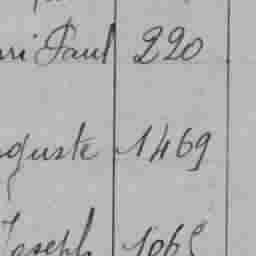 ri Paul 220
guste 1469
Joseph 1065